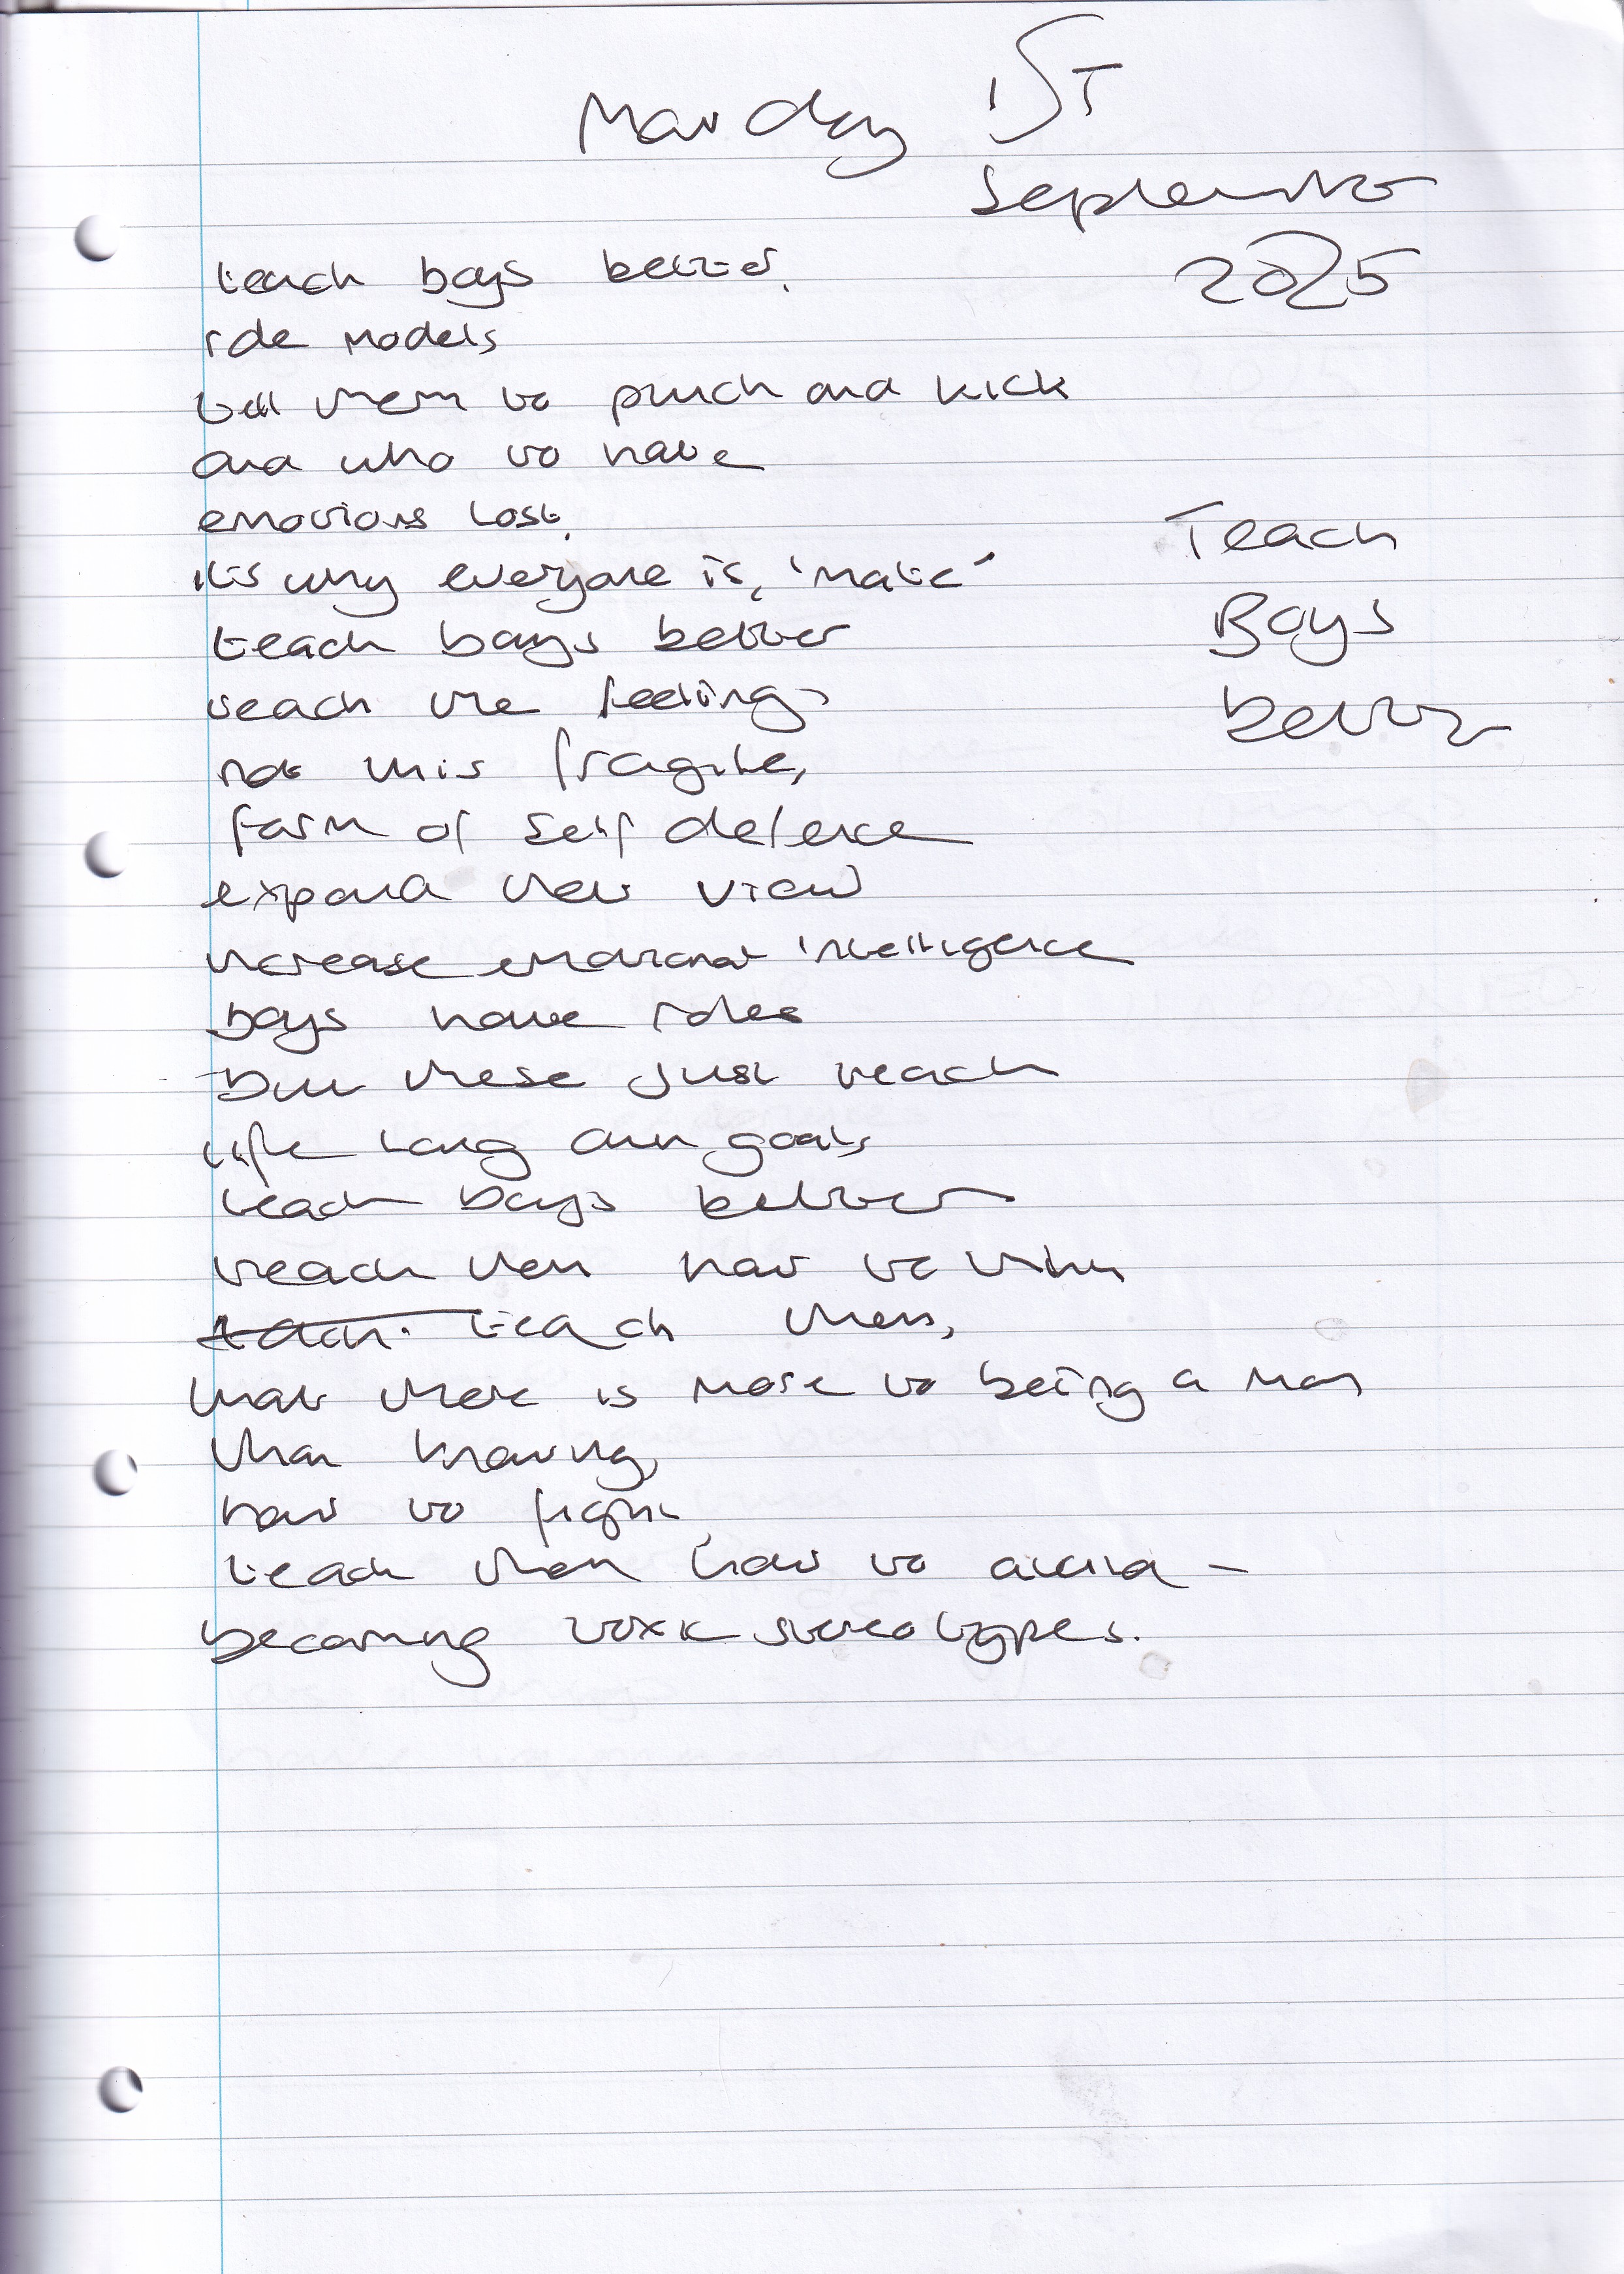 Monday 1ST
September
2025
teach boys better,
role models
tell them to punch and kick
and who to hate
emotions lost,
it's why everyone is, 'mate'
teach boys better
teach the feelings
not this fragile,
form of self defence
expand their view
increase emotional intelligence
boys have roles
but these just reach
life long own goals
teach boys better
teach them how to
teach. teach them,
that there is more to being a man
than knowing,
how to fight,
teach them how to avoid -
becoming toxic stereotypes.
Teach
Boys
better